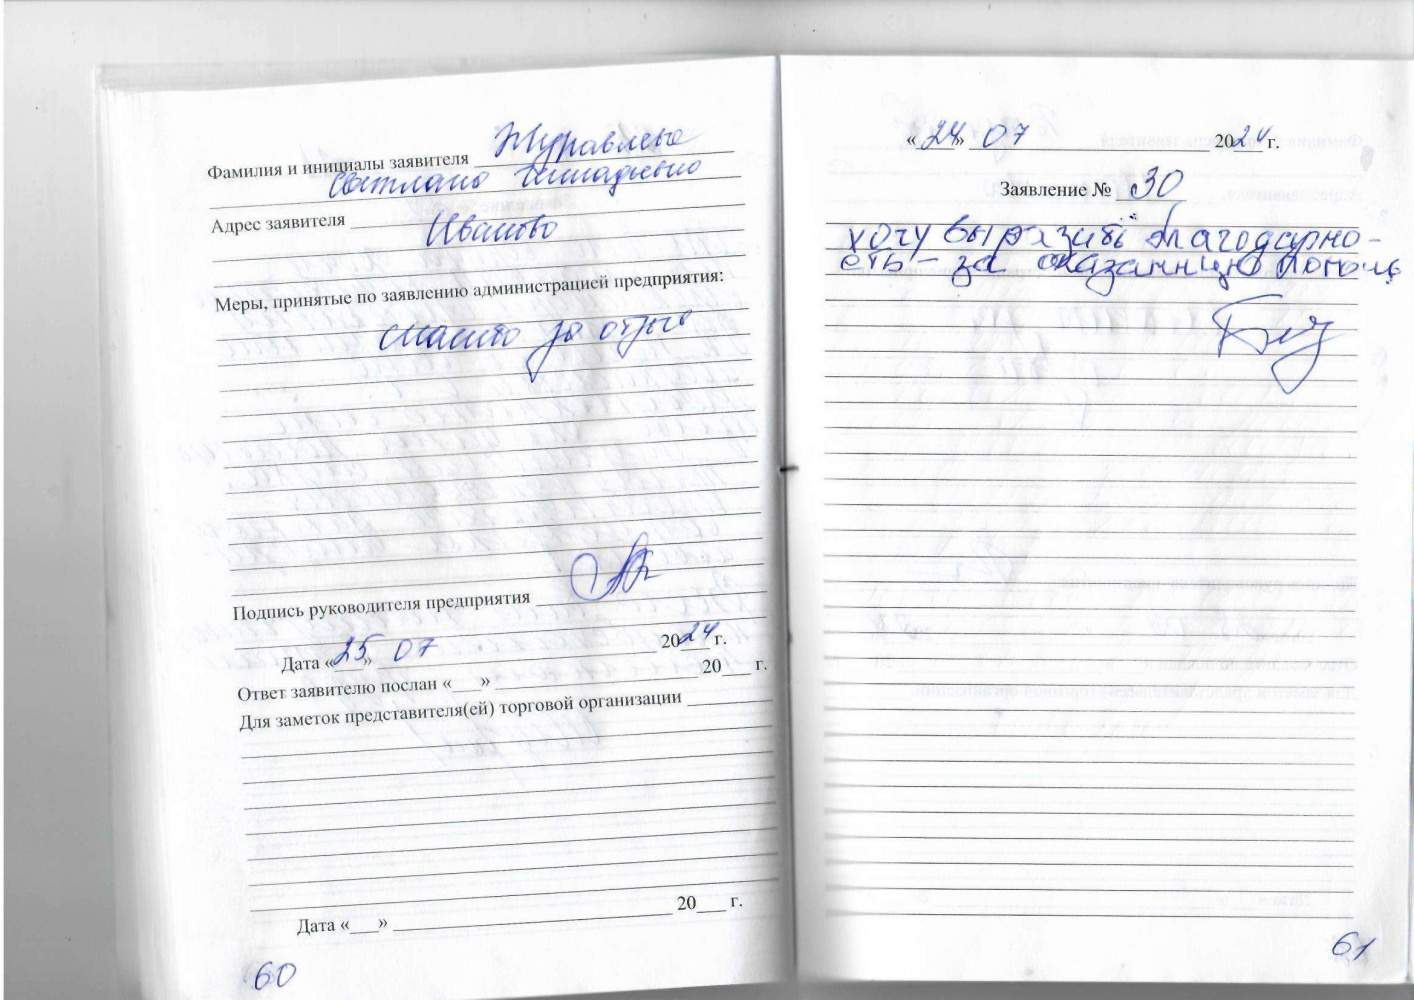 Фамилия и инициалы заявителя Журавлева
Светлана Геннадьевна
Адрес заявителя
Иваново
Меры, принятые по заявлению администрацией предприятия:
спасибо за отзыв
Подпись руководителя предприятия
Дата «25» 07 2024 г.
Ответ заявителю послан «___» 20___ г.
Для заметок представителя(ей) торговой организации
Дата «___» 20___ г.
60
«24» 07 2024 г.
Заявление № 30
хочу выразить благодарно-
сть - за оказанную помощь
61